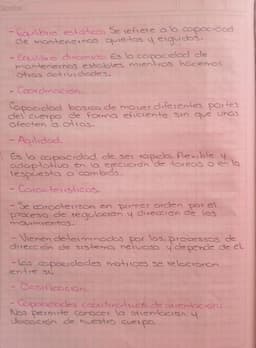 - Equilibrio estatico: Se refiere a la capacidad
de mantenernos quietos y erguidos.
- Equilibrio dinamico: Es la capacidad de
mantenernos estables mientras hacemos
otras actividades.
- Coordinacion.
Capacidad basica de mover diferentes partes
del cuerpo de forma eficiente sin que unas
afecten a otras.
- Agilidad.
Es la capacidad de ser rapido, flexible y
adaptativo en la ejecucion de tareas o en la
respuesta a cambios.
- Caracteristicas
- Se caracterizan en primer orden por el
proceso de regulacion y direccion de los
movimientos.
- Vienen determinados por los procesos de
direccion de sistema nervioso y depende de el.
- Las capacidades motrices se relacionan
entre si.
- Clasificacion.
- Capacidades coordinativas de orientacion:
Nos permite conocer la orientacion y
ubicacion de nuestro cuerpo.